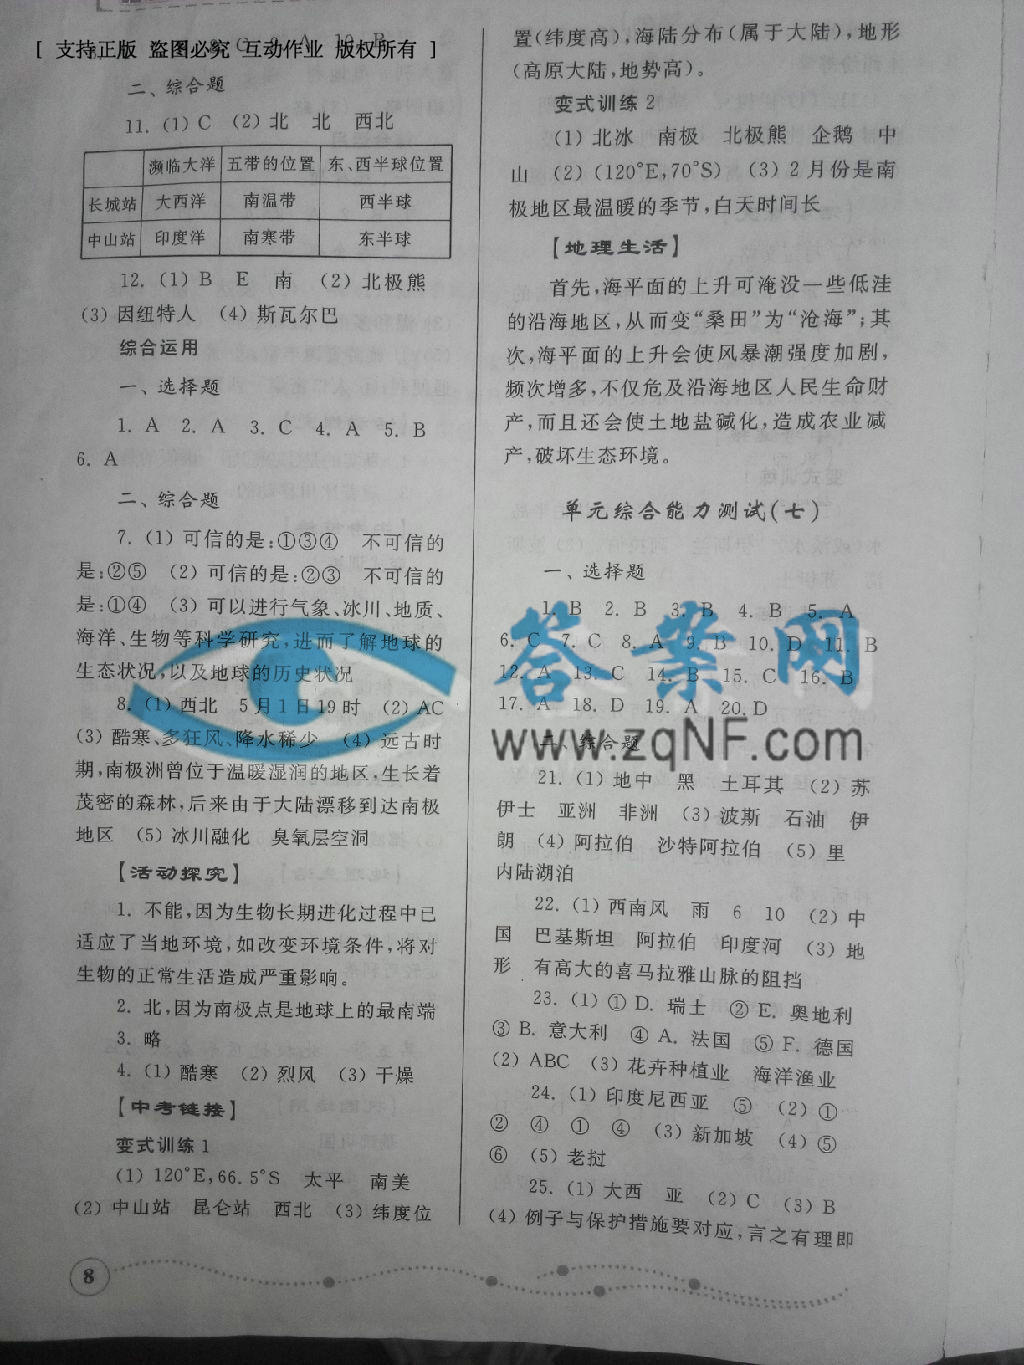 [ 支持正版 盗图必究 互动作业 版权所有 ]
二、综合题
11. (1) C (2) 北 北 西北
濒临大洋 五带的位置 东、西半球位置
长城站 大西洋 南温带 西半球
中山站 印度洋 南寒带 东半球
12. (1) B E 南 (2) 北极熊
(3) 因纽特人 (4) 斯瓦尔巴
综合运用
一、选择题
1. A 2. A 3. C 4. A 5. B
6. A
二、综合题
7. (1) 可信的是:①③④ 不可信的
是:②⑤ (2) 可信的是:②③ 不可信的
是:①④ (3) 可以进行气象、冰川、地质、
海洋、生物等科学研究,进而了解地球的
生态状况,以及地球的历史状况
8. (1) 西北 5月1日19时 (2) AC
(3) 酷寒、多狂风、降水稀少 (4) 远古时
期,南极洲曾位于温暖湿润的地区,生长着
茂密的森林,后来由于大陆漂移到达南极
地区 (5) 冰川融化 臭氧层空洞
【活动探究】
1. 不能,因为生物长期进化过程中已
适应了当地环境,如改变环境条件,将对
生物的正常生活造成严重影响。
2. 北,因为南极点是地球上的最南端
3. 略
4. (1) 酷寒 (2) 烈风 (3) 干燥
【中考链接】
变式训练1
(1) 120°E,66.5°S 太平 南美
(2) 中山站 昆仑站 西北 (3) 纬度位
8
置(纬度高),海陆分布(属于大陆),地形
(高原大陆,地势高)。
变式训练2
(1) 北冰 南极 北极熊 企鹅 中
山 (2) (120°E,70°S) (3) 2月份是南
极地区最温暖的季节,白天时间长
【地理生活】
首先,海平面的上升可淹没一些低洼
的沿海地区,从而变“桑田”为“沧海”;其
次,海平面的上升会使风暴潮强度加剧,
频次增多,不仅危及沿海地区人民生命财
产,而且还会使土地盐碱化,造成农业减
产,破坏生态环境。
单元综合能力测试(七)
一、选择题
1. B 2. B 3. B 4. B 5. A
6. C 7. C 8. A 9. B 10. D 11. B
12. A 13. C 14. B 15. C 16. B
17. A 18. D 19. A 20. D
答案网
www.zqNF.com
二、综合题
21. (1) 地中 黑 土耳其 (2) 苏
伊士 亚洲 非洲 (3) 波斯 石油 伊
朗 (4) 阿拉伯 沙特阿拉伯 (5) 里
内陆湖泊
22. (1) 西南风 雨 6 10 (2) 中
国 巴基斯坦 阿拉伯 印度河 (3) 地
形 有高大的喜马拉雅山脉的阻挡
23. (1) ① D. 瑞士 ② E. 奥地利
③ B. 意大利 ④ A. 法国 ⑤ F. 德国
(2) ABC (3) 花卉种植业 海洋渔业
24. (1) 印度尼西亚 ⑤ (2) ①
② ④ ① ④ (3) 新加坡 (4) ⑤
⑥ (5) 老挝
25. (1) 大西 亚 (2) C (3) B
(4) 例子与保护措施要对应,言之有理即